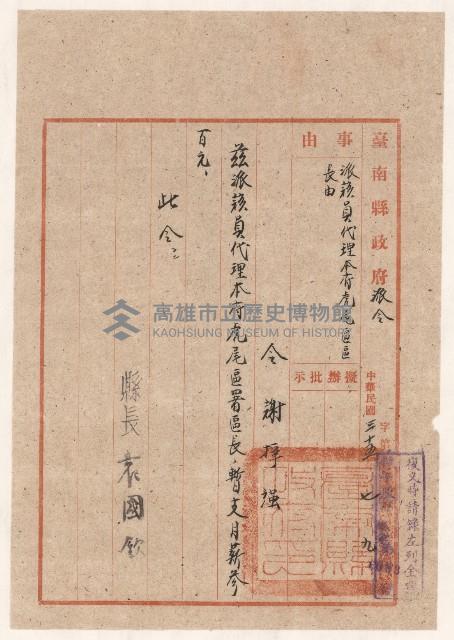 臺南縣政府派令
中華民國三十五
字第
七
九
事由
派該員代理本府虎尾區區
長由
擬辦批示
令謝掙强
茲派該員代理本府虎尾區署區長暫支月薪叄
百元、
此令
縣長袁國欽
復文時請錄左列全
高雄市立歷史博物館
KAOHSIUNG MUSEUM OF HISTORY